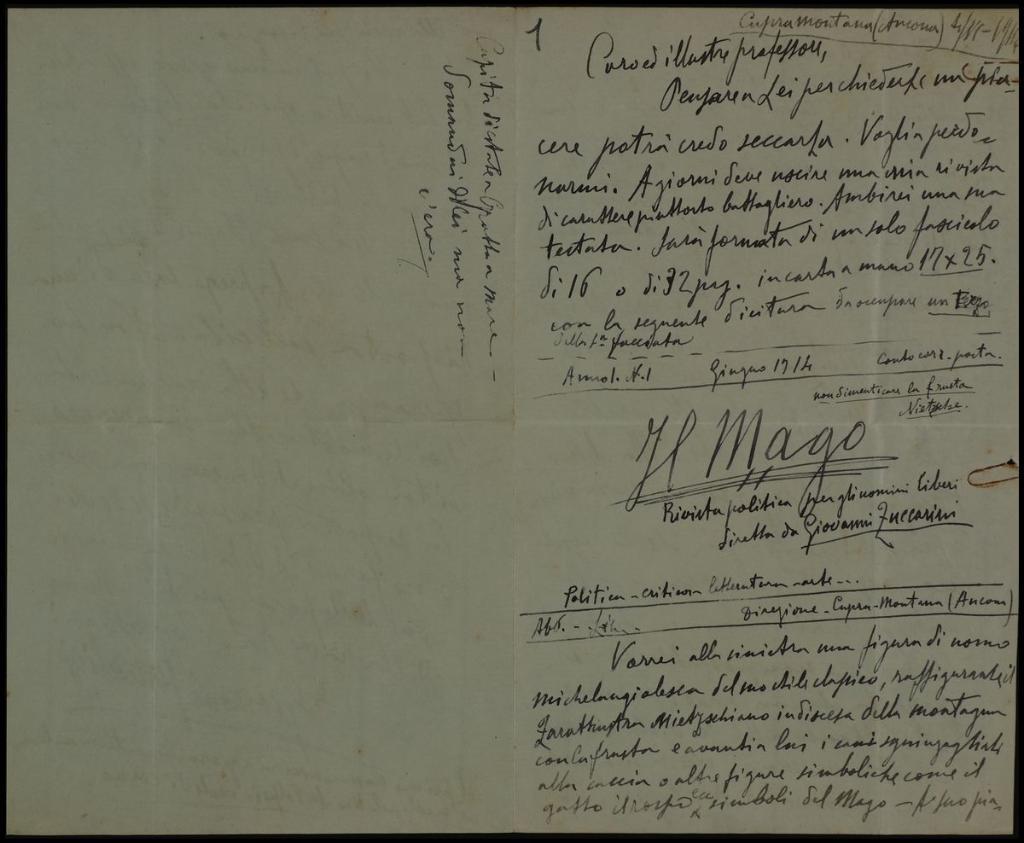 1
Cupramontana (Ancona) 4/VI-1914
Caro ed illustre professore,
Pensare a Lei per chiederLe un pia-
cere potrà credo seccarLa. Voglia perdo-
narmi. A giorni deve uscire una mia rivista
di carattere piuttosto battagliero. Ambirei una sua
testata. Sarà formata di un solo fascicolo
di 16 o di 32 pag. in carta a mano 17x25.
con la seguente dicitura da occupare un terzo
della 1a facciata
Anno I. N. 1 Giugno 1914 Conto corr. posta.
non dimenticare la frusta
Nietzsche.
Il Mago
Rivista politica per gli uomini liberi
diretta da Giovanni Zuccarini
Politica - critica - letteratura - arte - ..
Abb. - Direzione - Cupra-Montana (Ancona)
Vorrei alla sinistra una figura di uomo
michelangiolesca del suo stile classico, raffigurante il
Zarathustra Nietzschiano in discesa della montagna
con la frusta e avanti a lui i cani sguinzagliati
alla caccia o altre figure simboliche come il
gatto il rospo ecc simboli del Mago - A suo pia-
Capitai d'estate a Grottammare -
Domandai di Lei ma non
c'era.